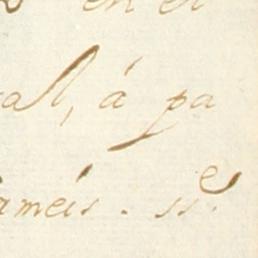 en el
al, á pa
ameis. SS.e